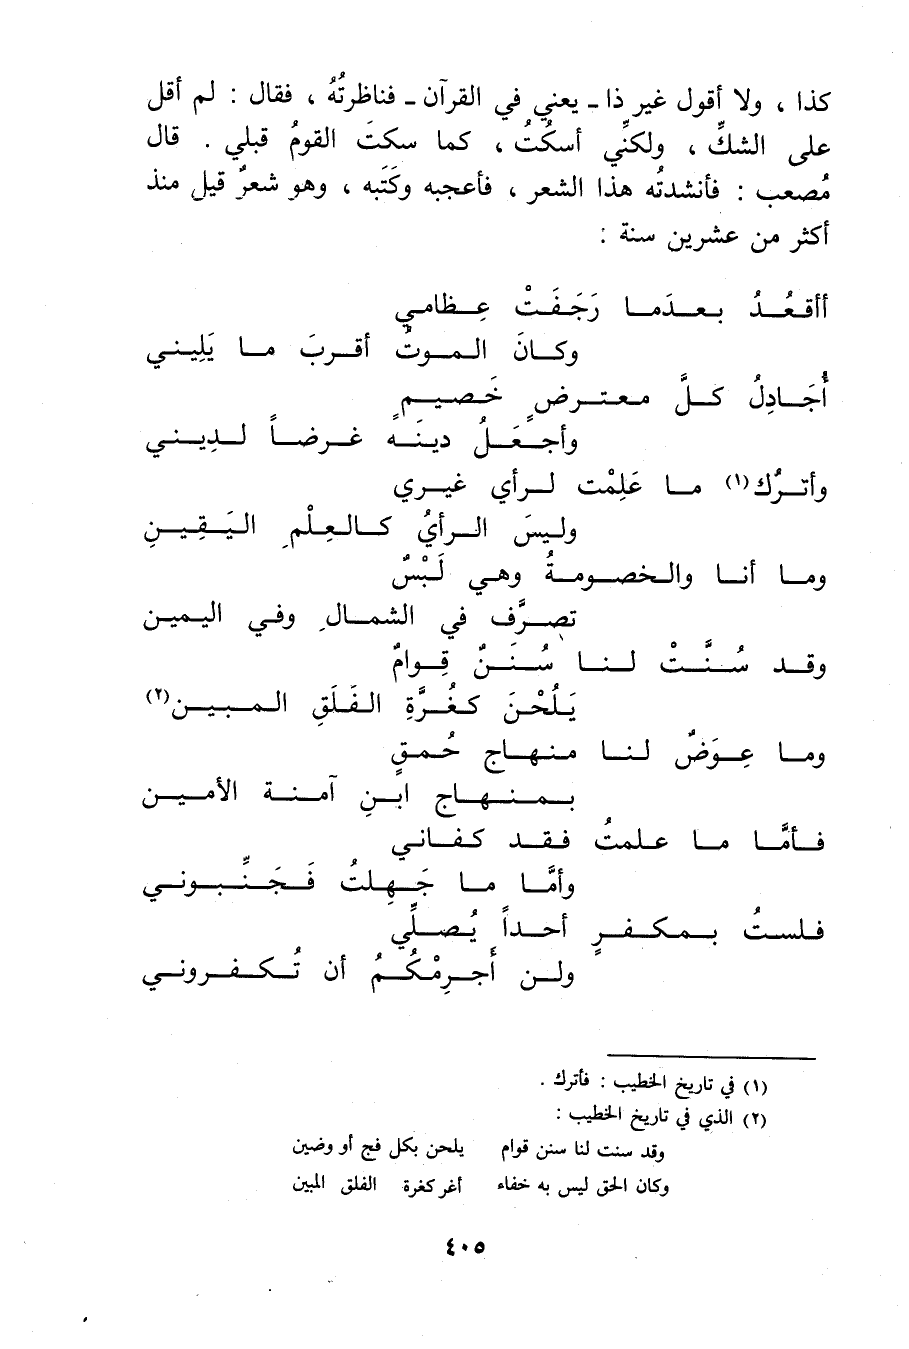 كذا ، ولا أقول غير ذا ـ يعني في القرآن ـ فناظرتُهُ ، فقال : لم أقل
على الشكِّ ، ولكنِّي أسكُتُ ، كما سكتَ القومُ قبلي . قال
مُصعب : فأنشدتُه هذا الشعر ، فأعجبه وكَتَبه ، وهو شعرٌ قيل منذ
أكثر من عشرين سنة :
أأقعُدُ بعدَما رَجَفَتْ عِظامي
وكانَ الموتُ أقربَ ما يَلِيني
أُجَادِلُ كلَّ معترضٍ خَصيمٍ
وأجعَلُ دينَه غرضاً لدِيني
وأترُك(١) ما عَلِمْت لرأي غيري
وليسَ الرأيُ كالعِلْمِ اليَقِينِ
وما أنا والخصومةُ وهي لَبْسٌ
تصرَّف في الشمالِ وفي اليمين
وقد سُنَّتْ لنا سُنَنٌ قِوامٌ
يَلُحْنَ كغُرَّةِ الفَلَقِ المبين(٢)
وما عِوَضٌ لنا منهاج حُمقٍ
بمنهاج ابنِ آمنة الأمين
فأمَّا ما علمتُ فقد كفاني
وأمَّا ما جَهِلتُ فَجَنِّبوني
فلستُ بمكفرٍ أحداً يُصلِّي
ولن أُجرِمْكُمُ أن تُكفروني
(١) في تاريخ الخطيب : فأترك .
(٢) الذي في تاريخ الخطيب :
وقد سنت لنا سنن قوام يلحن بكل فج أو وضين
وكان الحق ليس به خفاء أغر كغرة الفلق المبين
٤٠٥